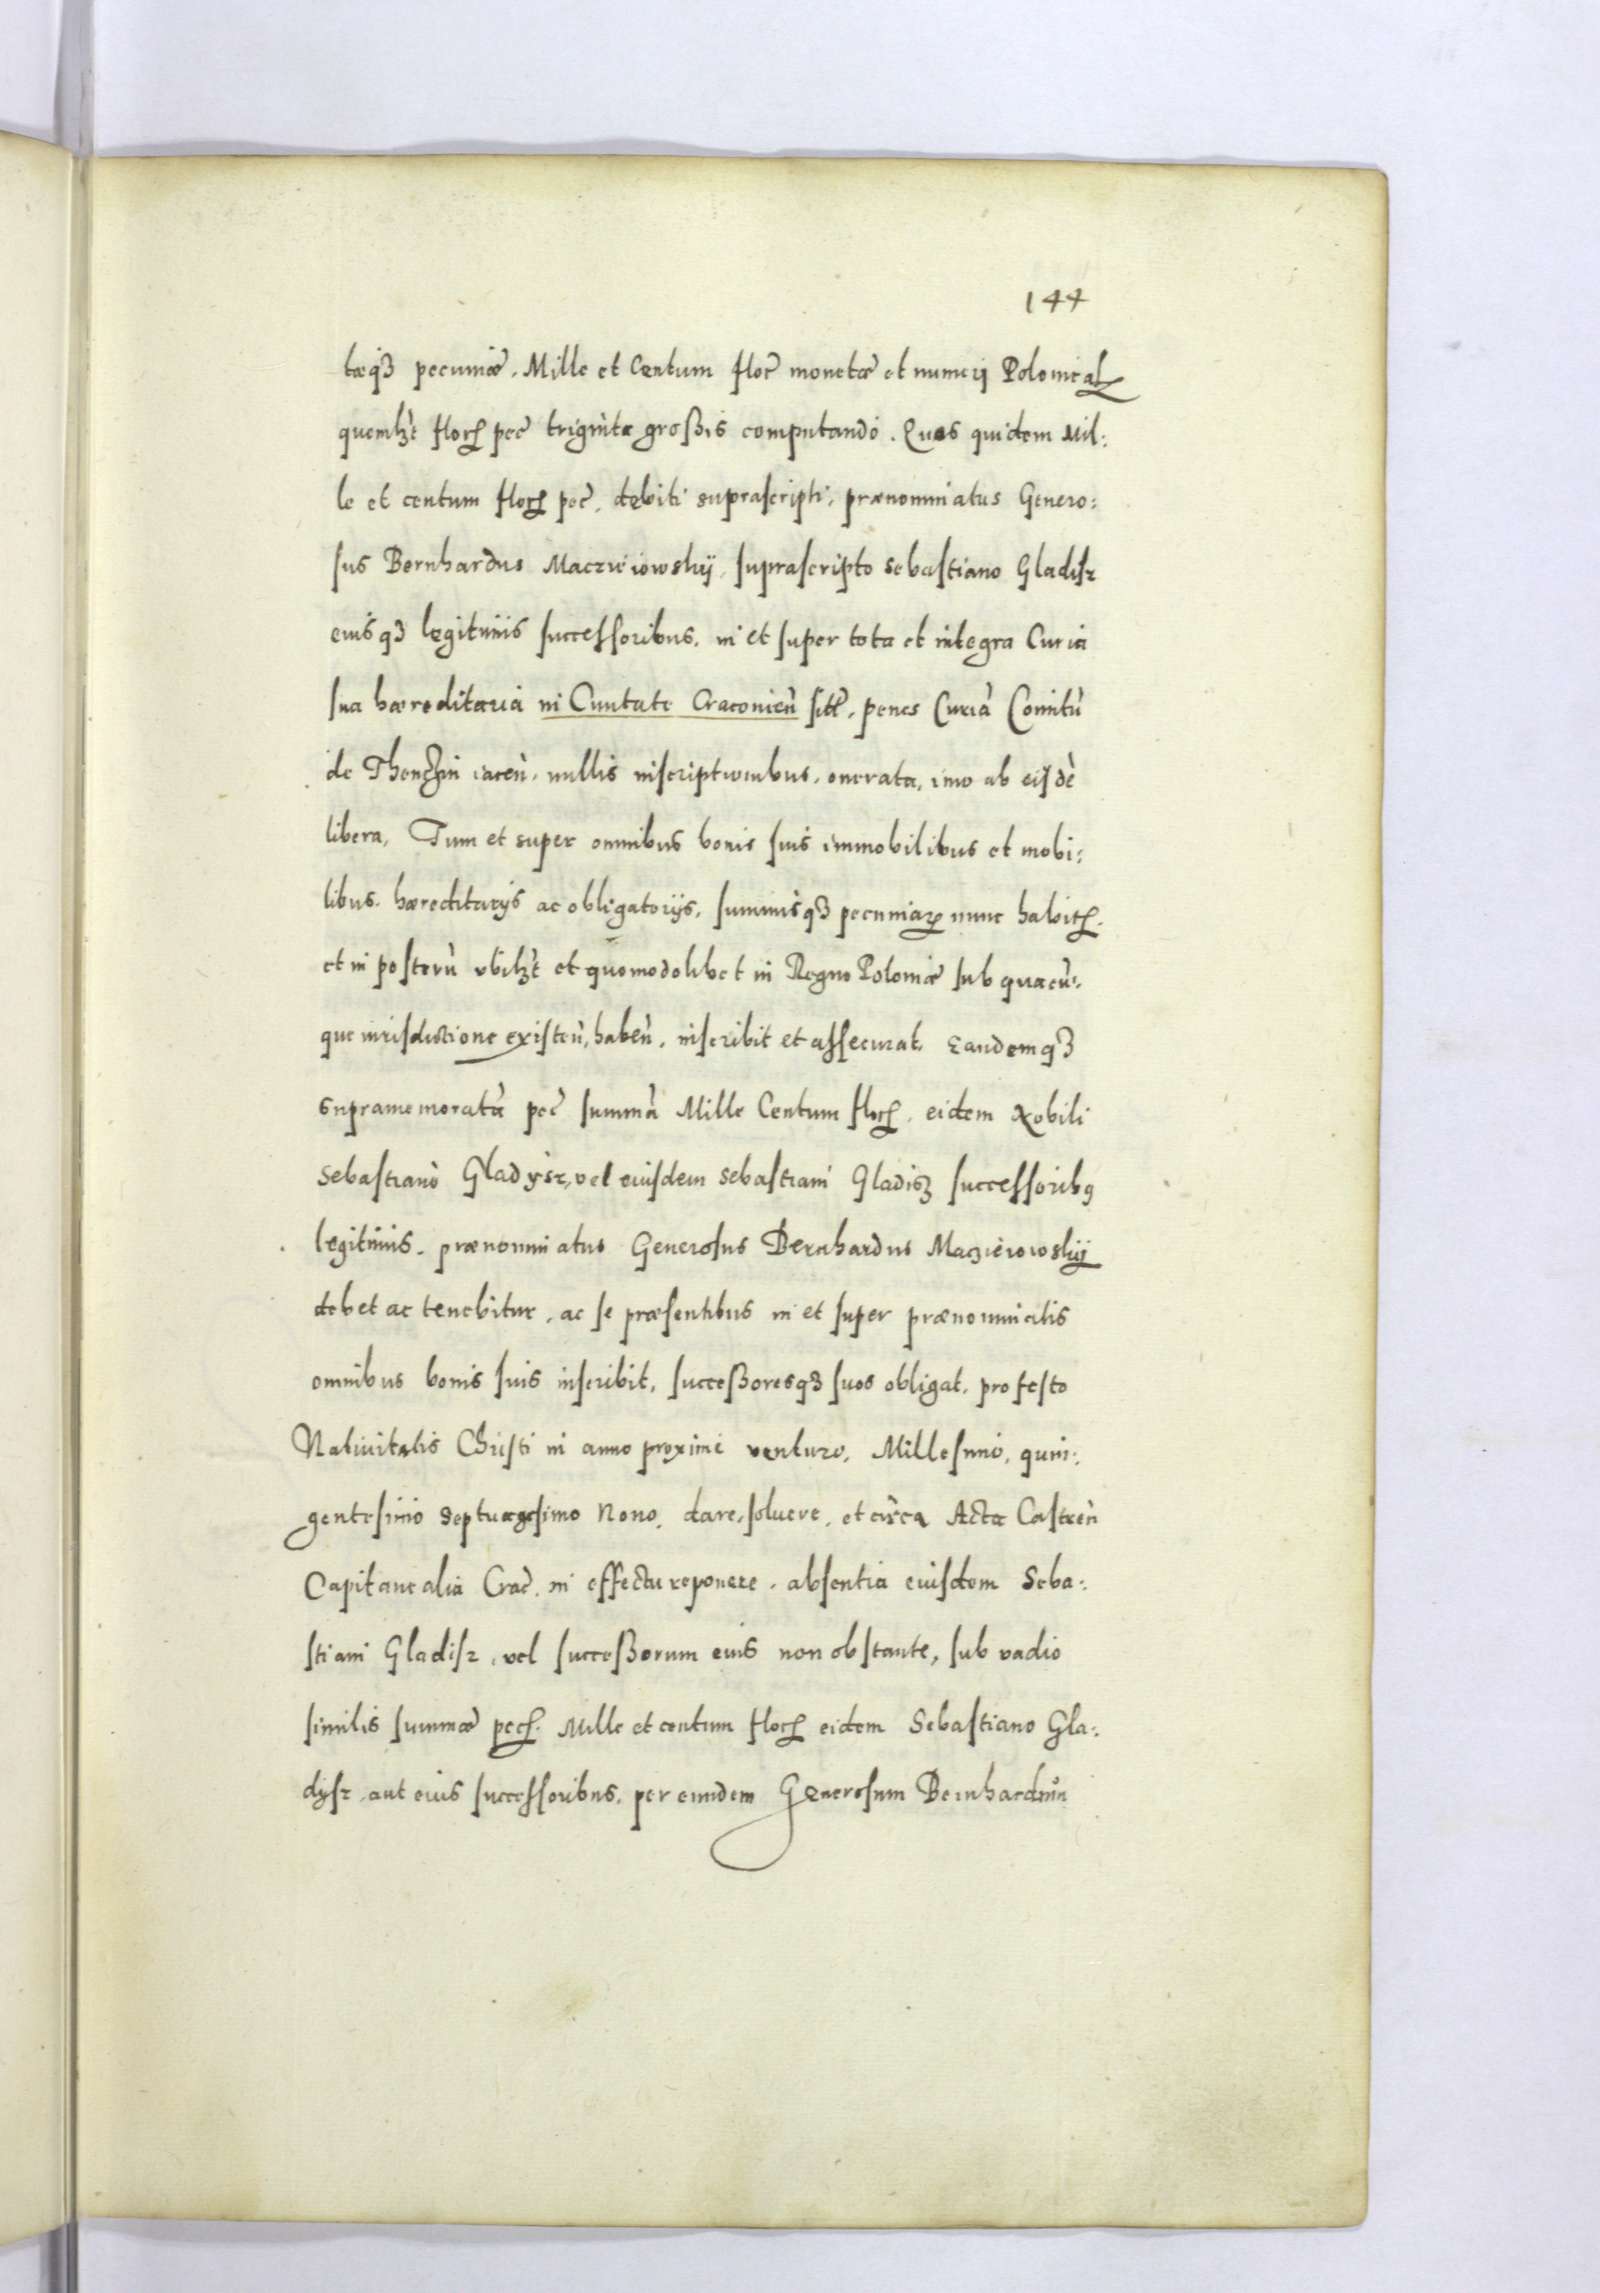 144
tæq3 pecuniæ. Mille et Centum floc̃ monetæ et numerj Polonical
quemlzt̀ floc̃ pec̃ triginta großis computando. Quos quidem Mil:
le et centum floc̃ pec̃. debiti suprascripti, prænominatus Genero:
sus Bernhardus Maczieiowskij, suprascripto Sebastiano Gladisz
eiusq3 legitimis successoribus. in et super tota et integra Curia
sua hæreditaria in Ciuitate Cracouien̄ sitã, penes Curiā Comitū
de Thenczin iacen̄. nullis inscriptionibus. onerata, imo ab eisdē
libera, Tum et super omnibus bonis suis immobilibus et mobi:
libus. hæreditarijs ac obligatorijs, summisq3 pecuniar̃ nunc habit̃.
et in posterū vbilzt̀ et quomodolibet in Regno Poloniæ sub quacū:
que iurisdictione existen̄, haben̄. inscribit et assecurat. Eandemq3
supramemoratā pec̃ summā Mille Centum floc̃. eidem Nobili
Sebastiano Gladysz, vel eiusdem Sebastiani Gladisz successorib9
legitimis. prænominatus Generosus Bernhardus Maczieiowskij
debet ac tenebitur. ac se præsentibus in et super prænominatis
omnibus bonis suis inscribit, succeßoresq3 suos obligat, pro festo
Natiuitatis Christi in anno proxime venturo, Millesimo, quin:
gentesimo Septuagesimo Nono, dare, soluere, et circa Acta Castren̄
Capitanealia Crac̃. in effectu reponere. absentia eiusdem Seba:
stiani Gladisz, vel succeßorum eius non obstante, sub vadio
similis summæ pec̃. Mille et centum floc̃ eidem Sebastiano Gla:
dysz, aut eius successoribus, per eundem Generosum Bernhardum